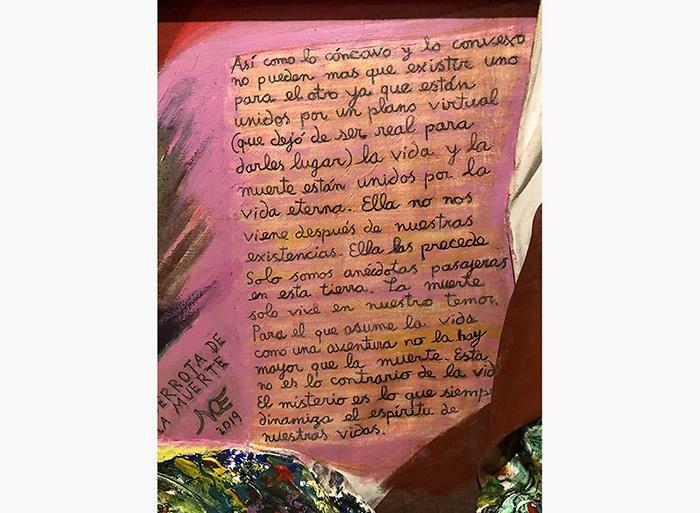 Así como lo cóncavo y lo convexo
no pueden mas que existir uno
para el otro ya que están
unidos por un plano virtual
(que dejó de ser real para
darles lugar) la vida y la
muerte están unidos por la
vida eterna. Ella no nos
viene después de nuestras
existencias. Ella las precede
Solo somos anécdotas pasajeras
en esta tierra. La muerte
solo vive en nuestro temor.
Para el que asume la vida
como una aventura no la hay
mayor que la muerte. Esta
no es lo contrario de la vid
El misterio es lo que siemp
dinamiza el espíritu de
nuestras vidas.
ERROTA DE
LA MUERTE
NOE
2019